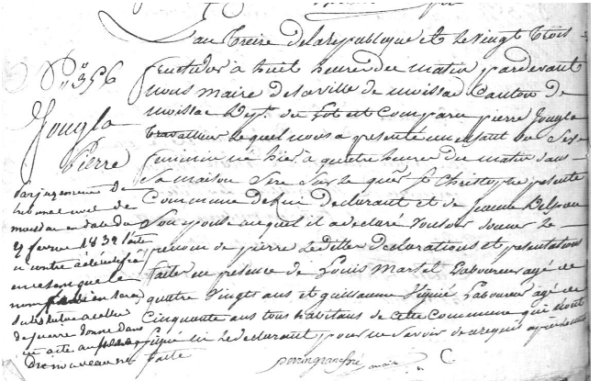 L'an treize de la république et le vingt trois
fructidor à huit heures du matin pardevant
nous maire de la ville de moissac Canton de
moissac Dept. du Lot est Comparu pierre Jougla
travailleur lequel nous a présenté un enfant de sexe
féminin né hier à quatre heures du matin dans
sa maison sise sur le quay St Christophe présente
Commune de lui déclarant et de jeanne
son épouse auquel il a declaré vouloir donner le
prenom de pierre Lesdittes déclarations et présentations
faites en présence de Louis martel Laboureur agé de
quatre vingts ans et guillaume Laboureur agé de
Cinquante ans tous habitans de cette Commune qui n'ont
signé ni le declarant pour ne savoir de ce requis
faite
maire
No 356
Jougla
Pierre
par jugement du
tribunal civil de
moissac en date du
4 février 1832 l'acte
ci contre a été rectifié
en ce sens que le
nom
substitué a celui
de pierre donné dans
cet acte au